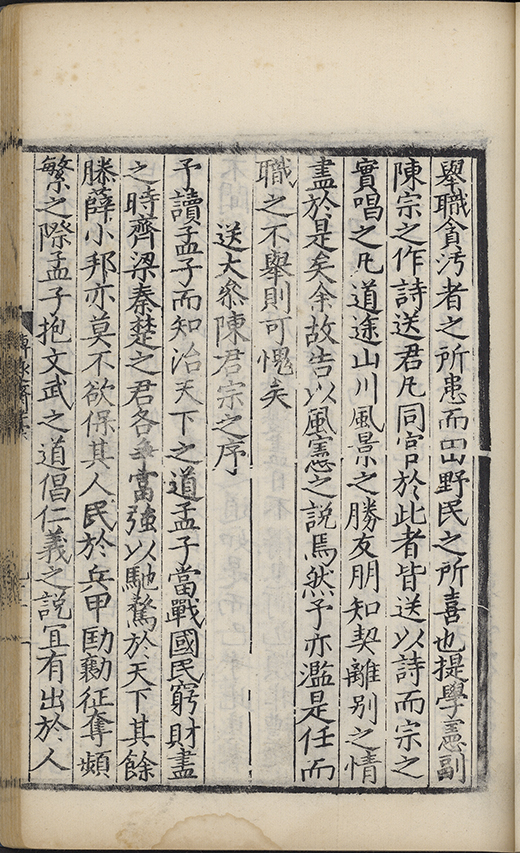 舉職貪汚者之所患而田野民之所喜也提學憲副
陳宗之作詩送君凡同官於此者皆送以詩而宗之
實唱之凡道途山川風景之勝友朋知契離別之情
盡於是矣余故告以風憲之說焉然予亦濫是任而
職之不舉則可愧矣
送大叅陳君宗之序
予讀孟子而知治天下之道孟子當戰國民窮財盡
之時齊梁秦楚之君各爭富強以馳騖於天下其餘
滕薛小邦亦莫不欲保其人民於兵甲劻勷征奪頻
繁之際孟子抱文武之道倡仁義之說宜有出於人